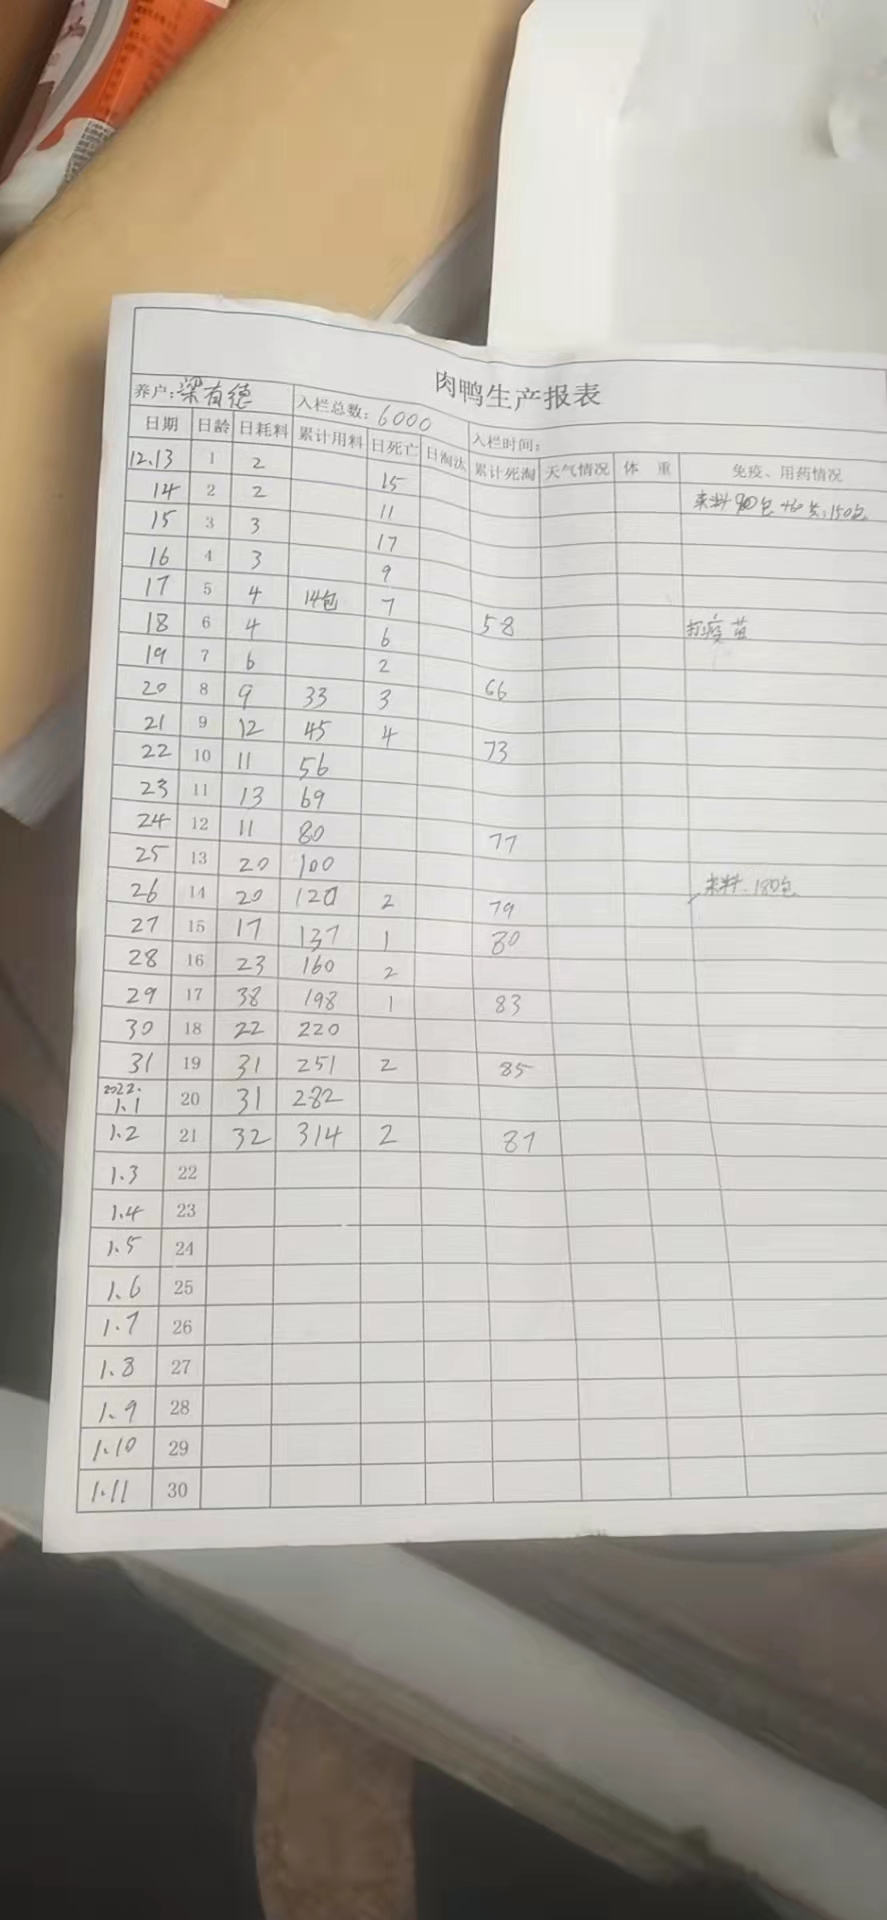 肉鸭生产报表
养户:梁有德 入栏总数:6000 入栏时间:
日期 日龄 日耗料 累计用料 日死亡 日淘汰 累计死淘 天气情况 体 重 免疫、用药情况
12.13 1 2 15
14 2 2 11 来料90包+60包:150包
15 3 3 17
16 4 3 9
17 5 4 14包 7
18 6 4 6 58 打疫苗
19 7 6 2
20 8 9 33 3 66
21 9 12 45 4
22 10 11 56 73
23 11 13 69
24 12 11 80
25 13 20 100 77
26 14 20 120 2 79 来料.180包
27 15 17 137 1 80
28 16 23 160 2
29 17 38 198 1 83
30 18 22 220
31 19 31 251 2 85
2022.
1.1 20 31 282
1.2 21 32 314 2 87
1.3 22
1.4 23
1.5 24
1.6 25
1.7 26
1.8 27
1.9 28
1.10 29
1.11 30